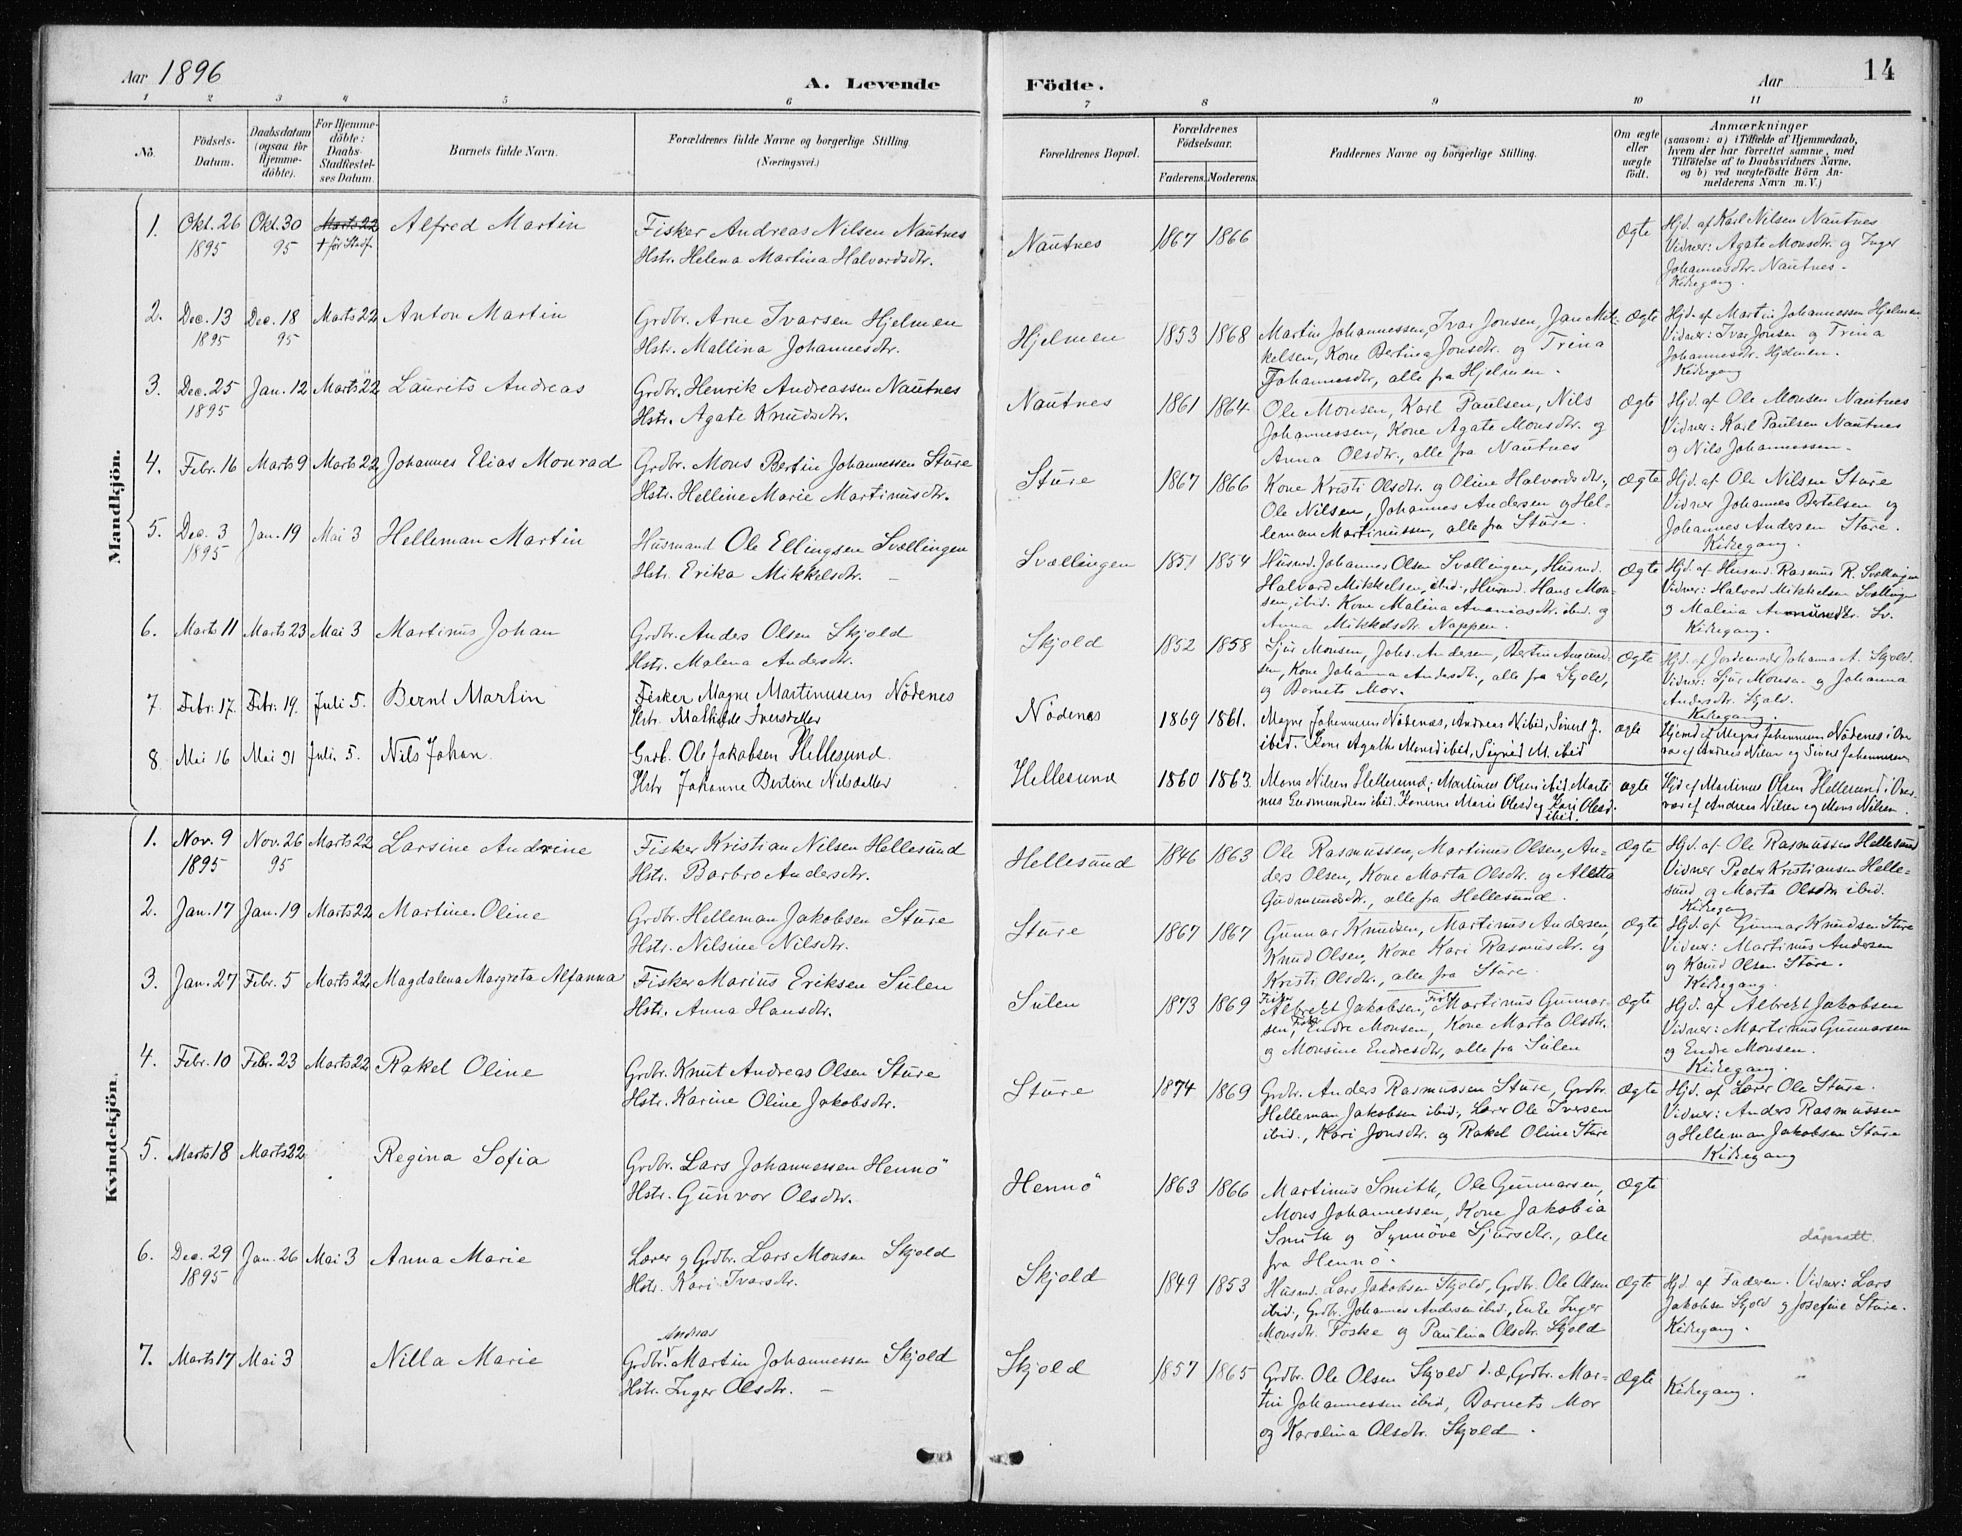 Aar 1896
A. Levende
Födte.
Aar
14
1 2 3 4 5 6 7 8 9 10 11
No.
Födsels-
Datum.
Daabsdatum
(ogsaa for
Hjemme-
döbte).
For Hjemme-
döbte:
Daabs-
Stadfæstel-
ses Datum.
Barnets fulde Navn.
Forældrenes fulde Navne og borgerlige Stilling
(Næringsvei.)
Forældrenes Bopæl.
Forældrenes
Födselsaar.
Faderens. Moderens.
Faddernes Navne og borgerlige Stilling.
Om ægte
eller
uægte
födt.
Anmærkninger
(saasom: a) i Tilfælde af Hjemmedaab,
hvem der har forrettet samme, med
Tilföielse af to Daabsvidners Navne.
og b) ved uægtefödte Börn An-
melderens Navn m. V.)
Mandkjön.
1. Okt. 26 Okt. 30 Marts 22 Alfred Martin Fisker Andreas Nilsen Nautnes
1895 95 † før Stadf. Hstr. Helena Martina Halvordsdtr.
Nautnes 1867 1866 Ægte Hjd. af Karl Nilsen Nautnes
Vidner: Agate Monsdtr. og Inger
Johannesdtr. Nautnes.
Kirkegang.
2. Dec. 13 Dec. 18 Marts 22 Anton Martin Grdbr. Arne Ivarsen Hjelmen
1895 95 Hstr. Mallina Johannesdtr.
Hjelmen 1853 1868 Martin Johannessen, Ivar Jonsen, Jan Mik- Ægte Hjd. af Martin Johannessen Hjelmen
kelsen, Kone Bertina Jonsdtr. og Trina Vidner: Ivar Jonsen og Trina
Johannesdtr., alle fra Hjelmen. Johannesdtr. Hjelmen.
Kirkegang
3. Dec. 25 Jan. 12 Marts 22 Laurits Andreas Grdbr. Henrik Andreassen Nautnes
1895 Hstr. Agate Knudsdtr.
Nautnes 1861 1864 Ole Monsen, Karl Paulsen, Nils Ægte Hjd. af Ole Monsen Nautnes
Johannessen, Kone Agate Monsdtr. og Vidner: Karl Paulsen Nautnes
Anna Olsdtr., alle fra Nautnes og Nils Johannessen.
4. Febr. 16 Marts 9 Marts 22 Johannes Elias Monrad Grdbr. Mons Bertin Johannessen Sture
Hstr. Helline Marie Martinusdtr.
Sture 1867 1866 Kone Kristi Olsdtr. og Oline Halvordsdtr., Ægte Hjd. af Ole Nilsen Sture
Ole Nilsen, Johannes Andersen og Hel- Vidner Johannes Bertelsen og
leman Martinussen, alle fra Sture. Johannes Andersen Sture.
Kirkegang.
5. Dec. 3 Jan. 19 Mai 3 Helleman Martin Husmand Ole Ellingsen Svællingen
1895 Hstr. Erika Mikkelsdtr.
Svællingen 1851 1854 Husmd. Johannes Olsen Svællingen, Husmd. Ægte Hjd. af Husmd. Rasmus R. Svællingen
Halvard Mikkelsen, ibid., Husmd. Hans Mon- Vidner: Halvord Mikkelsen Svællingen
sen, ibid. Kone Malina Ananiasdtr. ibid. og og Malina Sv.
Anna Mikkelsdtr. Nappen. Kirkegang.
6. Marts 11 Marts 23 Mai 3 Martinus Johan Grdbr. Anders Olsen Skjold
Hstr. Malena Andersdtr.
Skjold 1852 1858 Sjur Monsen, Johs. Andersen, Bertin Amund- Ægte Hjd. af Jordemoder Johanna A. Skjold.
sen, Kone Johanna Andersdtr., alle fra Skjold, Vidner: Sjur Monsen og Johanna
og Barnets Mor. Andersdtr. Skjold.
Kirkegang.
7. Febr. 17. Febr. 19. Juli 5. Bernt Martin Fisker Magne Martinussen Nödenes
Hstr. Mathilde Iversdatter
Nödenes 1869 1861. Magne Johannesen Nödenæs, Andreas N. ibid, Sivert J. ægte Hjemd af Magne Johannesen Nödenes i Ov-
ibid. Kone Agathe Monsd ibid, Sigrid M. ibid var af Andreas Nilsen og Sivert Johannesen
8 Mai 16 Mai 31 Juli 5. Nils Johan. Grdb. Ole Jakobsen Hellesund.
Hstr Johanne Bertine Nilsdatter
Hellesund 1860 1863. Mons Nilsen Hellesund; Martinus Olsen ibid. Marti- ægte Hjd af Martinus Olsen Hellesund i Over-
nus Gudmundsen ibid. Konerne Marie Olsd og Kari Olsd. vær af Andreas Nilsen og Mons Nilsen.
ibid.
Kvindekjön.
1. Nov. 9 Nov. 26 Marts 22 Larsine Andrine Fisker Kristian Nilsen Hellesund
1895 95 Hstr. Barbro Andersdtr.
Hellesund 1846 1863 Ole Rasmussen, Martinus Olsen, An- Ægte Hjd. af Ole Rasmussen Hellesund
ders Olsen, Kone Marta Olsdtr. og Aletta Vidner Peder Kristiansen Helle-
Gudmundsdtr., alle fra Hellesund. sund og Marta Olsdtr ibid.
Kirkegang
2. Jan. 17 Jan. 19 Marts 22 Martine Oline Grdbr. Helleman Jakobsen Sture
Hstr. Nilsine Nilsdtr.
Sture 1867 1867 Gunnar Knudsen, Martinus Andersen, Ægte Hjd. af Gunnar Knudsen Sture
Knud Olsen, Kone Kari Rasmusdtr. og Vidner: Martinus Andersen
Kristi Olsdtr., alle fra Sture. og Knud Olsen Sture.
Kirkegang.
3. Jan. 27 Febr. 5 Marts 22 Magdalena Margreta Alfanna Fisker Marius Eriksen Sulen
Hstr. Anna Hansdtr.
Sulen 1873 1869 Fisker Albrekt Jakobsen, Fisker Martinus Gunnar- Ægte Hjd. af Albrekt Jakobsen
sen, Fisker Endre Monsen, Kone Marta Olsdtr. Vidner: Martinus Gunnarsen
og Monsine Endresdtr, alle fra Sulen og Endre Monsen.
Kirkegang.
4. Febr. 10 Febr. 23 Marts 22 Rakel Oline Grdbr. Knut Andreas Olsen Sture
Hstr. Karine Oline Jakobsdtr.
Sture 1874 1869 Grdbr. Anders Rasmussen Sture, Grdbr. Ægte Hjd. af Lærer Ole Sture.
Helleman Jakobsen ibid., Lærer Ole Iversen Vidner: Anders Rasmussen
ibid., Kari Jonsdtr. og Rakel Oline Sture og Helleman Jakobsen Sture
Kirkegang
5. Marts 18 Marts 22 Regina Sofia Grdbr. Lars Johannessen Hennö
Hstr. Gunvor Olsdtr.
Hennö 1863 1866 Martinus Smith, Ole Gunnarsen, Ægte
Mons Johannessen, Kone Jakobia
Smith og Synnöve Sjursdtr., alle
fra Hennö.
6. Dec. 29 Jan. 26 Mai 3 Anna Marie Lærer og Grdbr. Lars Monsen Skjold
1895 Hstr. Kari Ivarsdtr.
Skjold 1849 1853 Husmd. Lars Jakobsen Skjold, Grdbr. Ole Olsen Ægte Hjd. af Faderen. Vidner: Lars
ibid., Grdbr. Johannes Andersen ibid., Enke Inger Jakobsen Skjold og Josefine Sture.
Monsdtr. Foske og Paulina Olsdtr. Skjold Kirkegang.
7. Marts 17 Mai 3 Nilla Marie Grdbr. Andreas Martin Johannessen Skjold
Hstr. Inger Olsdtr.
Skjold 1857 1865 Grdbr. Ole Olsen Skjold d. æ, Grdbr. Mar- Ægte Kirkegang.
tin Johannessen ibid, Barnets Mor
og Karolina Olsdtr. Skjold.